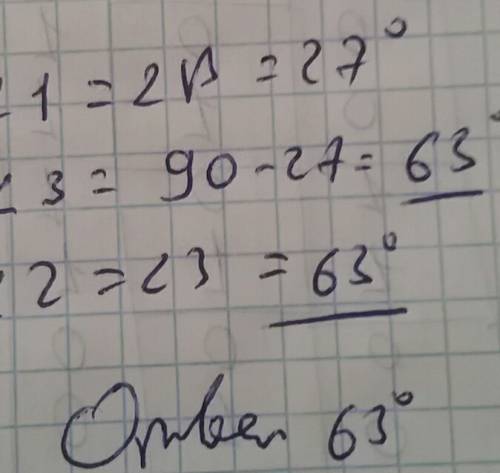 ∠ 1 = ∠B = 27°
∠ 3 = 90 - 27 = 63°
∠ 2 = ∠3 = 63°
Ответ 63°